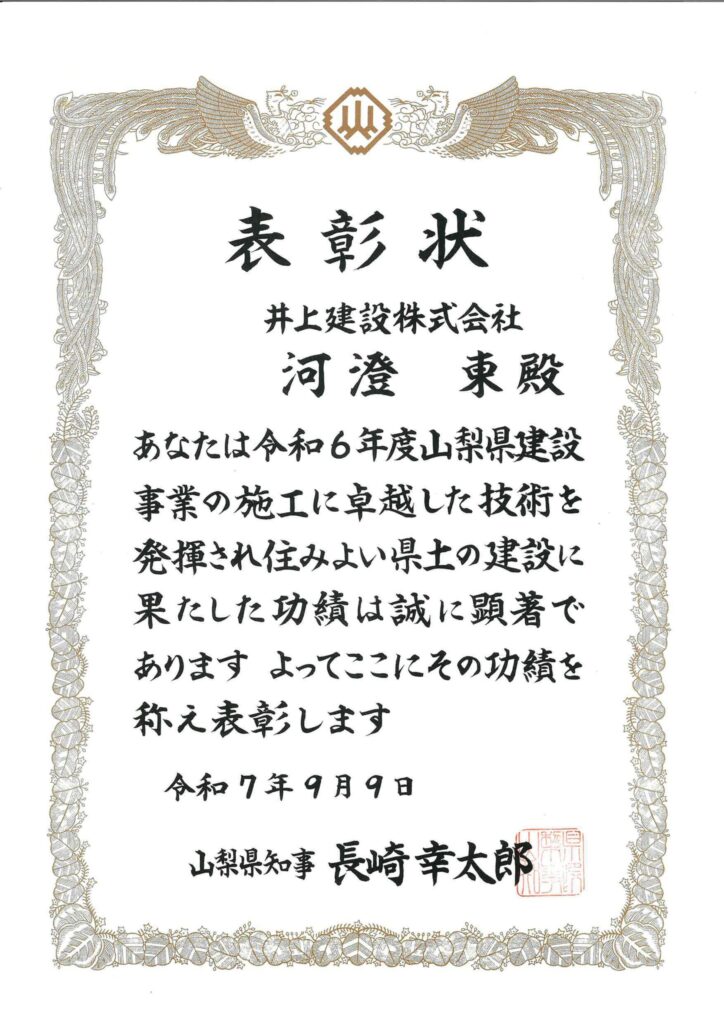 表彰状
井上建設株式会社
河澄 東殿
あなたは令和6年度山梨県建設
事業の施工に卓越した技術を
発揮され住みよい県土の建設に
果たした功績は誠に顕著で
あります よってここにその功績を
称え表彰します
令和7年9月9日
山梨県知事 長崎幸太郎